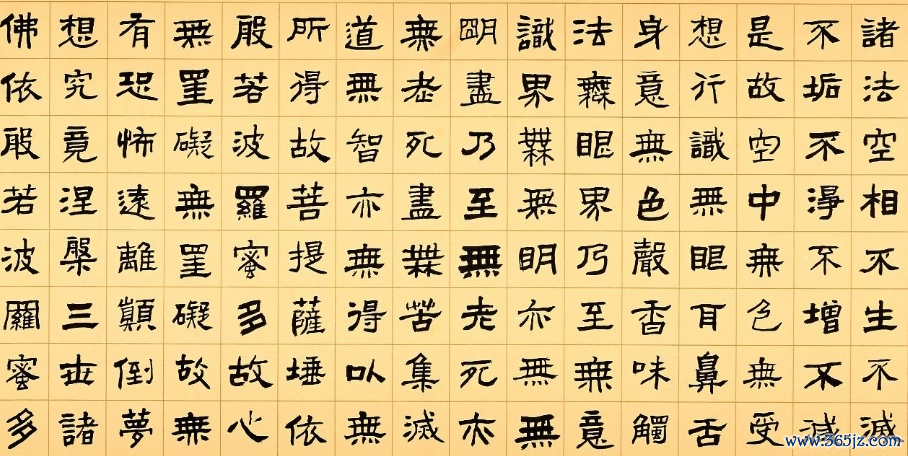 諸法空相不生不滅
不垢不淨不增不減
是故空中無色無受
想行識無眼耳鼻舌
身意無色聲香味觸
法無眼界乃至無意
識界無無明亦無無
明盡乃至無老死亦
無老死盡無苦集滅
道無智亦無得以無
所得故菩提薩埵依
般若波羅蜜多故心
無罣礙無罣礙故無
有恐怖遠離顛倒夢
想究竟涅槃三世諸
佛依般若波羅蜜多
www.365jz.com